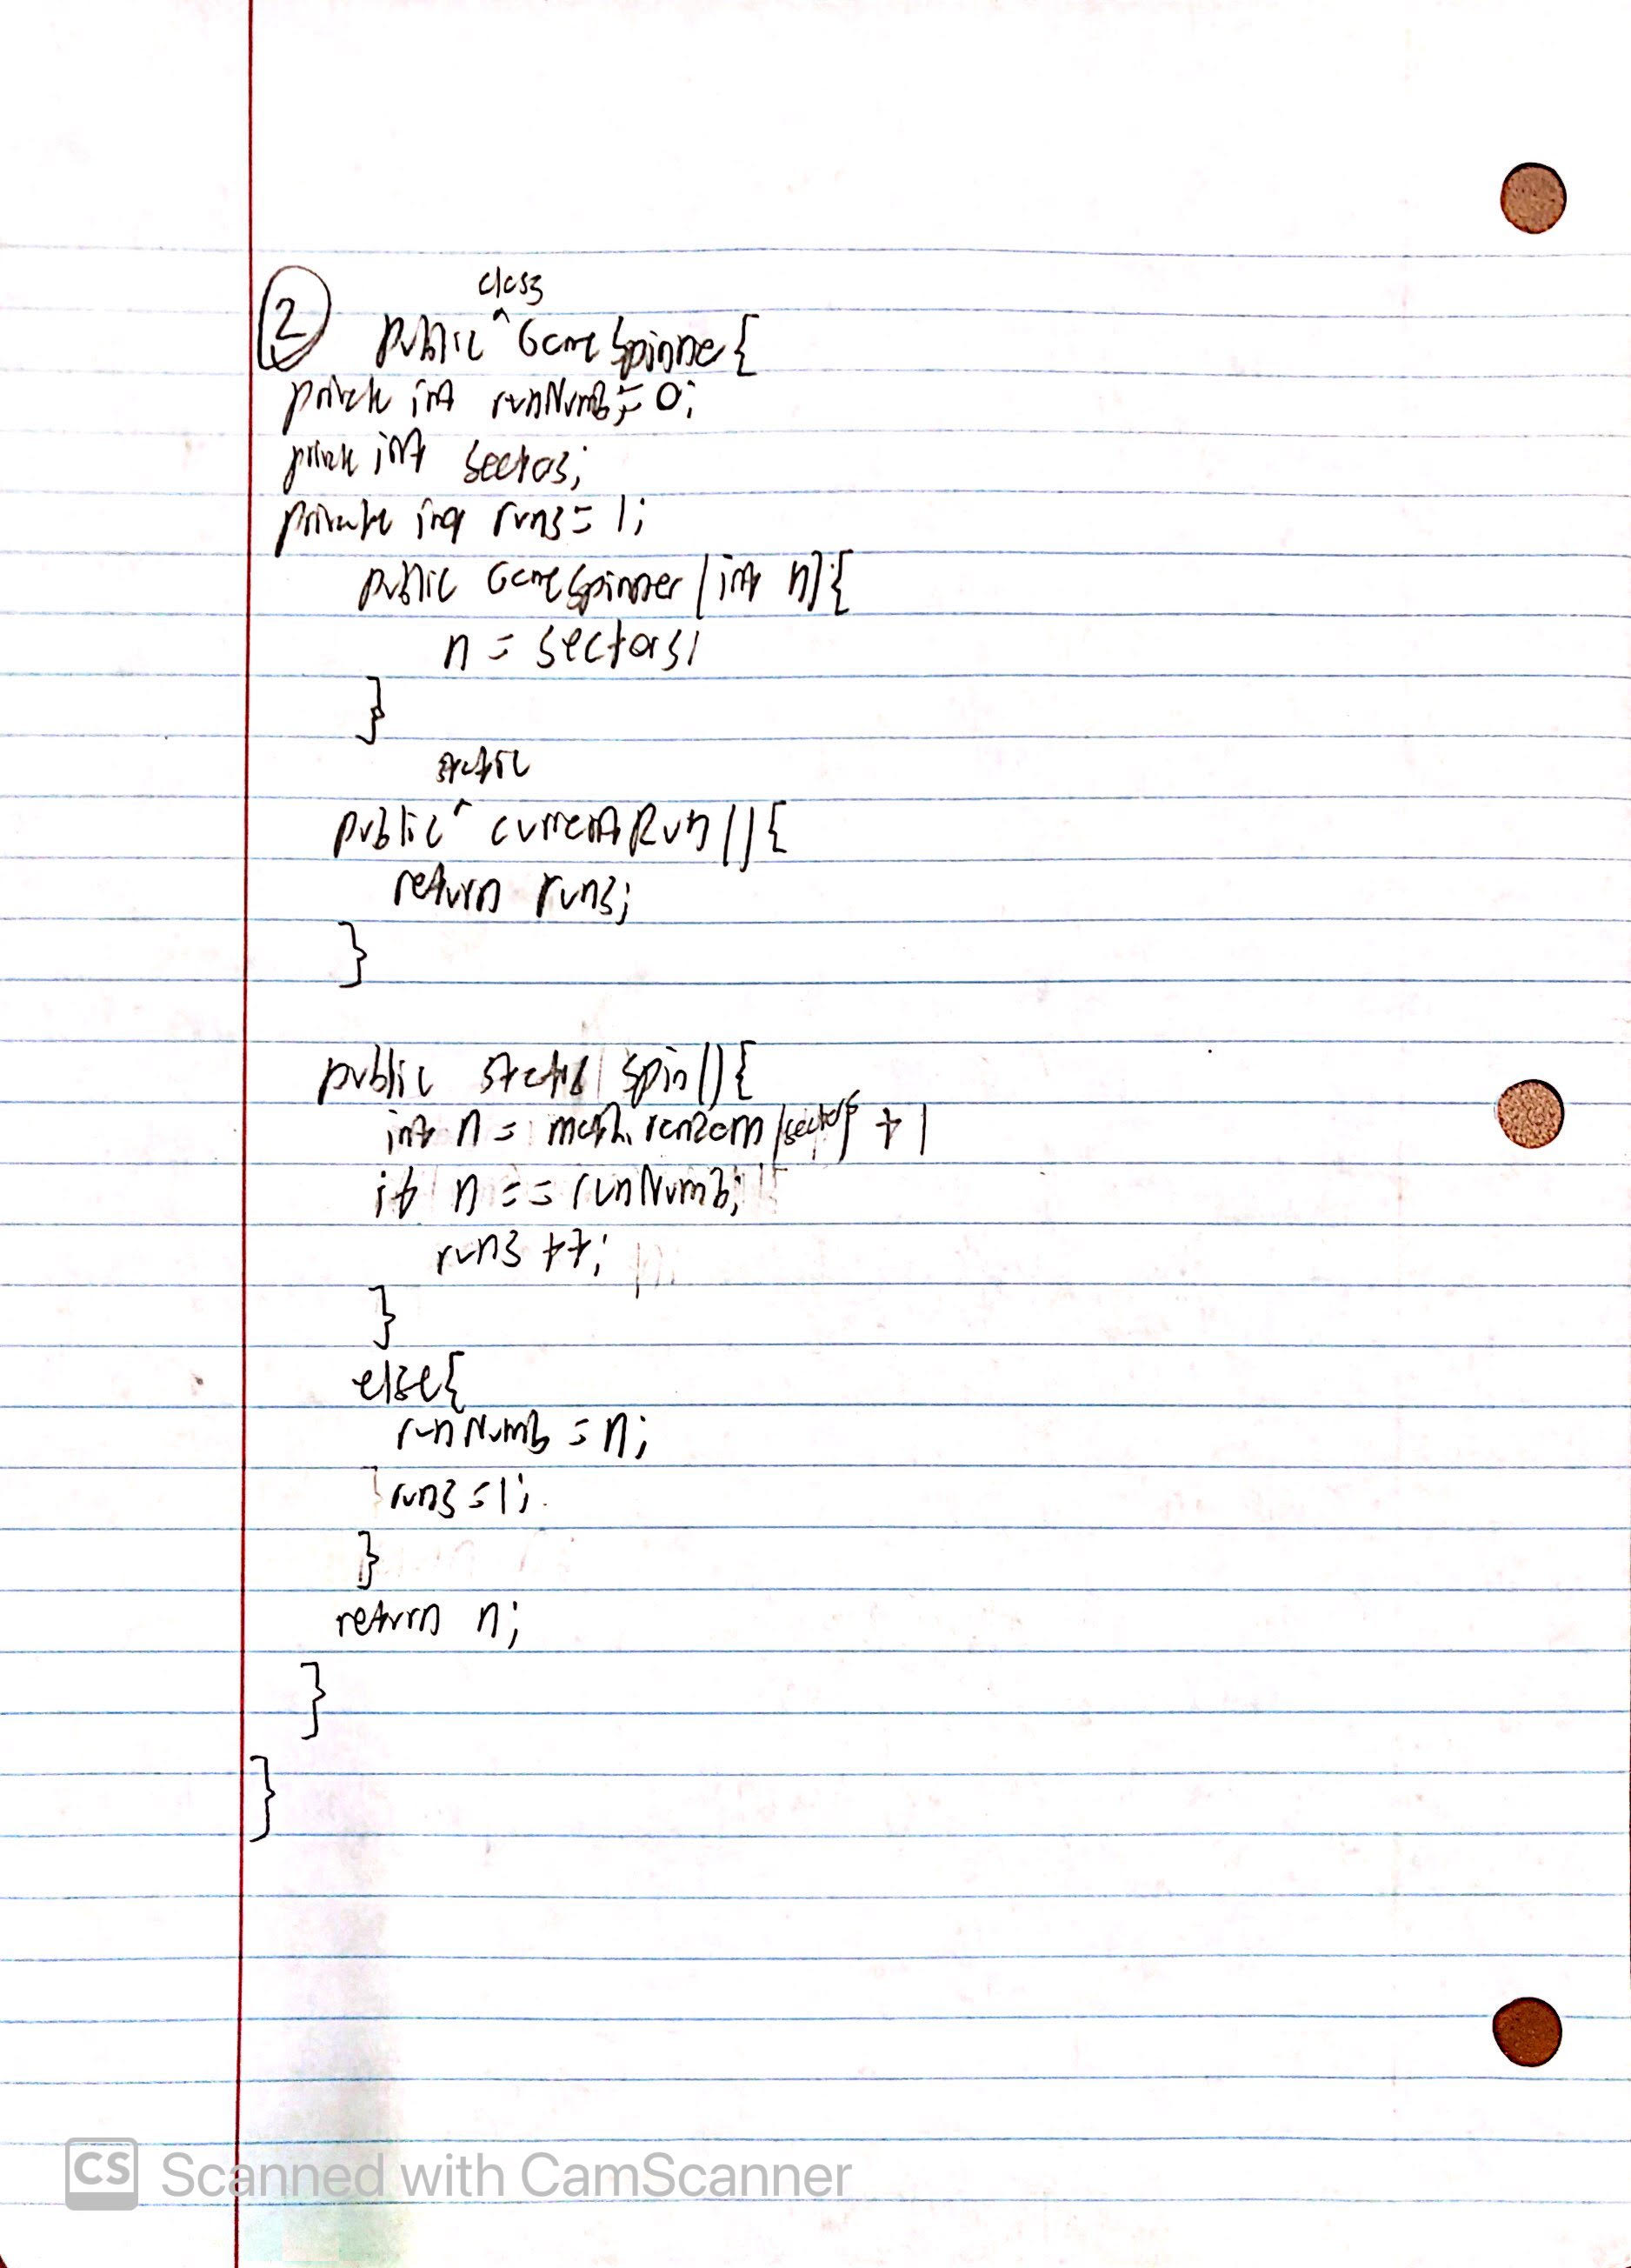 class
2 public ^ GameSpinner{
private int runNumb = 0;
private int sectors;
private int runs = 1;
public GameSpinner(int n){
n = sectors;
}
static
public ^ currentRun(){
return runs;
}
public static spin(){
int n = math.random(sectors) + 1
if n == runNumb;
runs ++;
}
else{
runNumb = n;
runs = 1;
}
return n;
}
}
CS Scanned with CamScanner